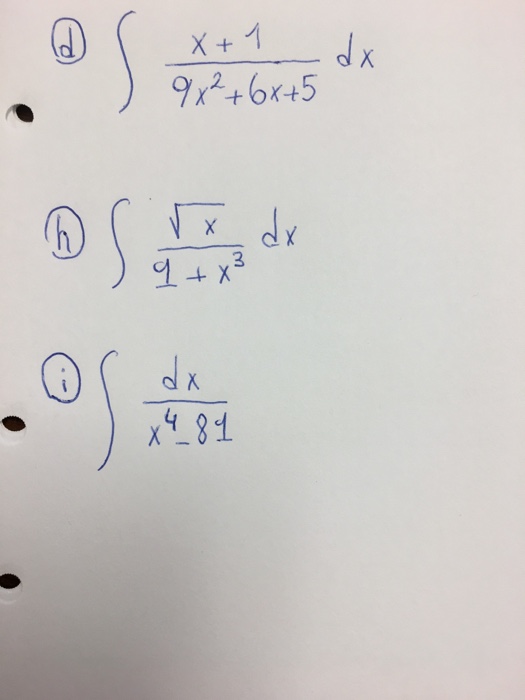 ⓓ ∫ (x + 1)/(9x² + 6x + 5) dx
ⓗ ∫ √x/(9 + x³) dx
ⓘ ∫ dx/(x⁴ - 81)